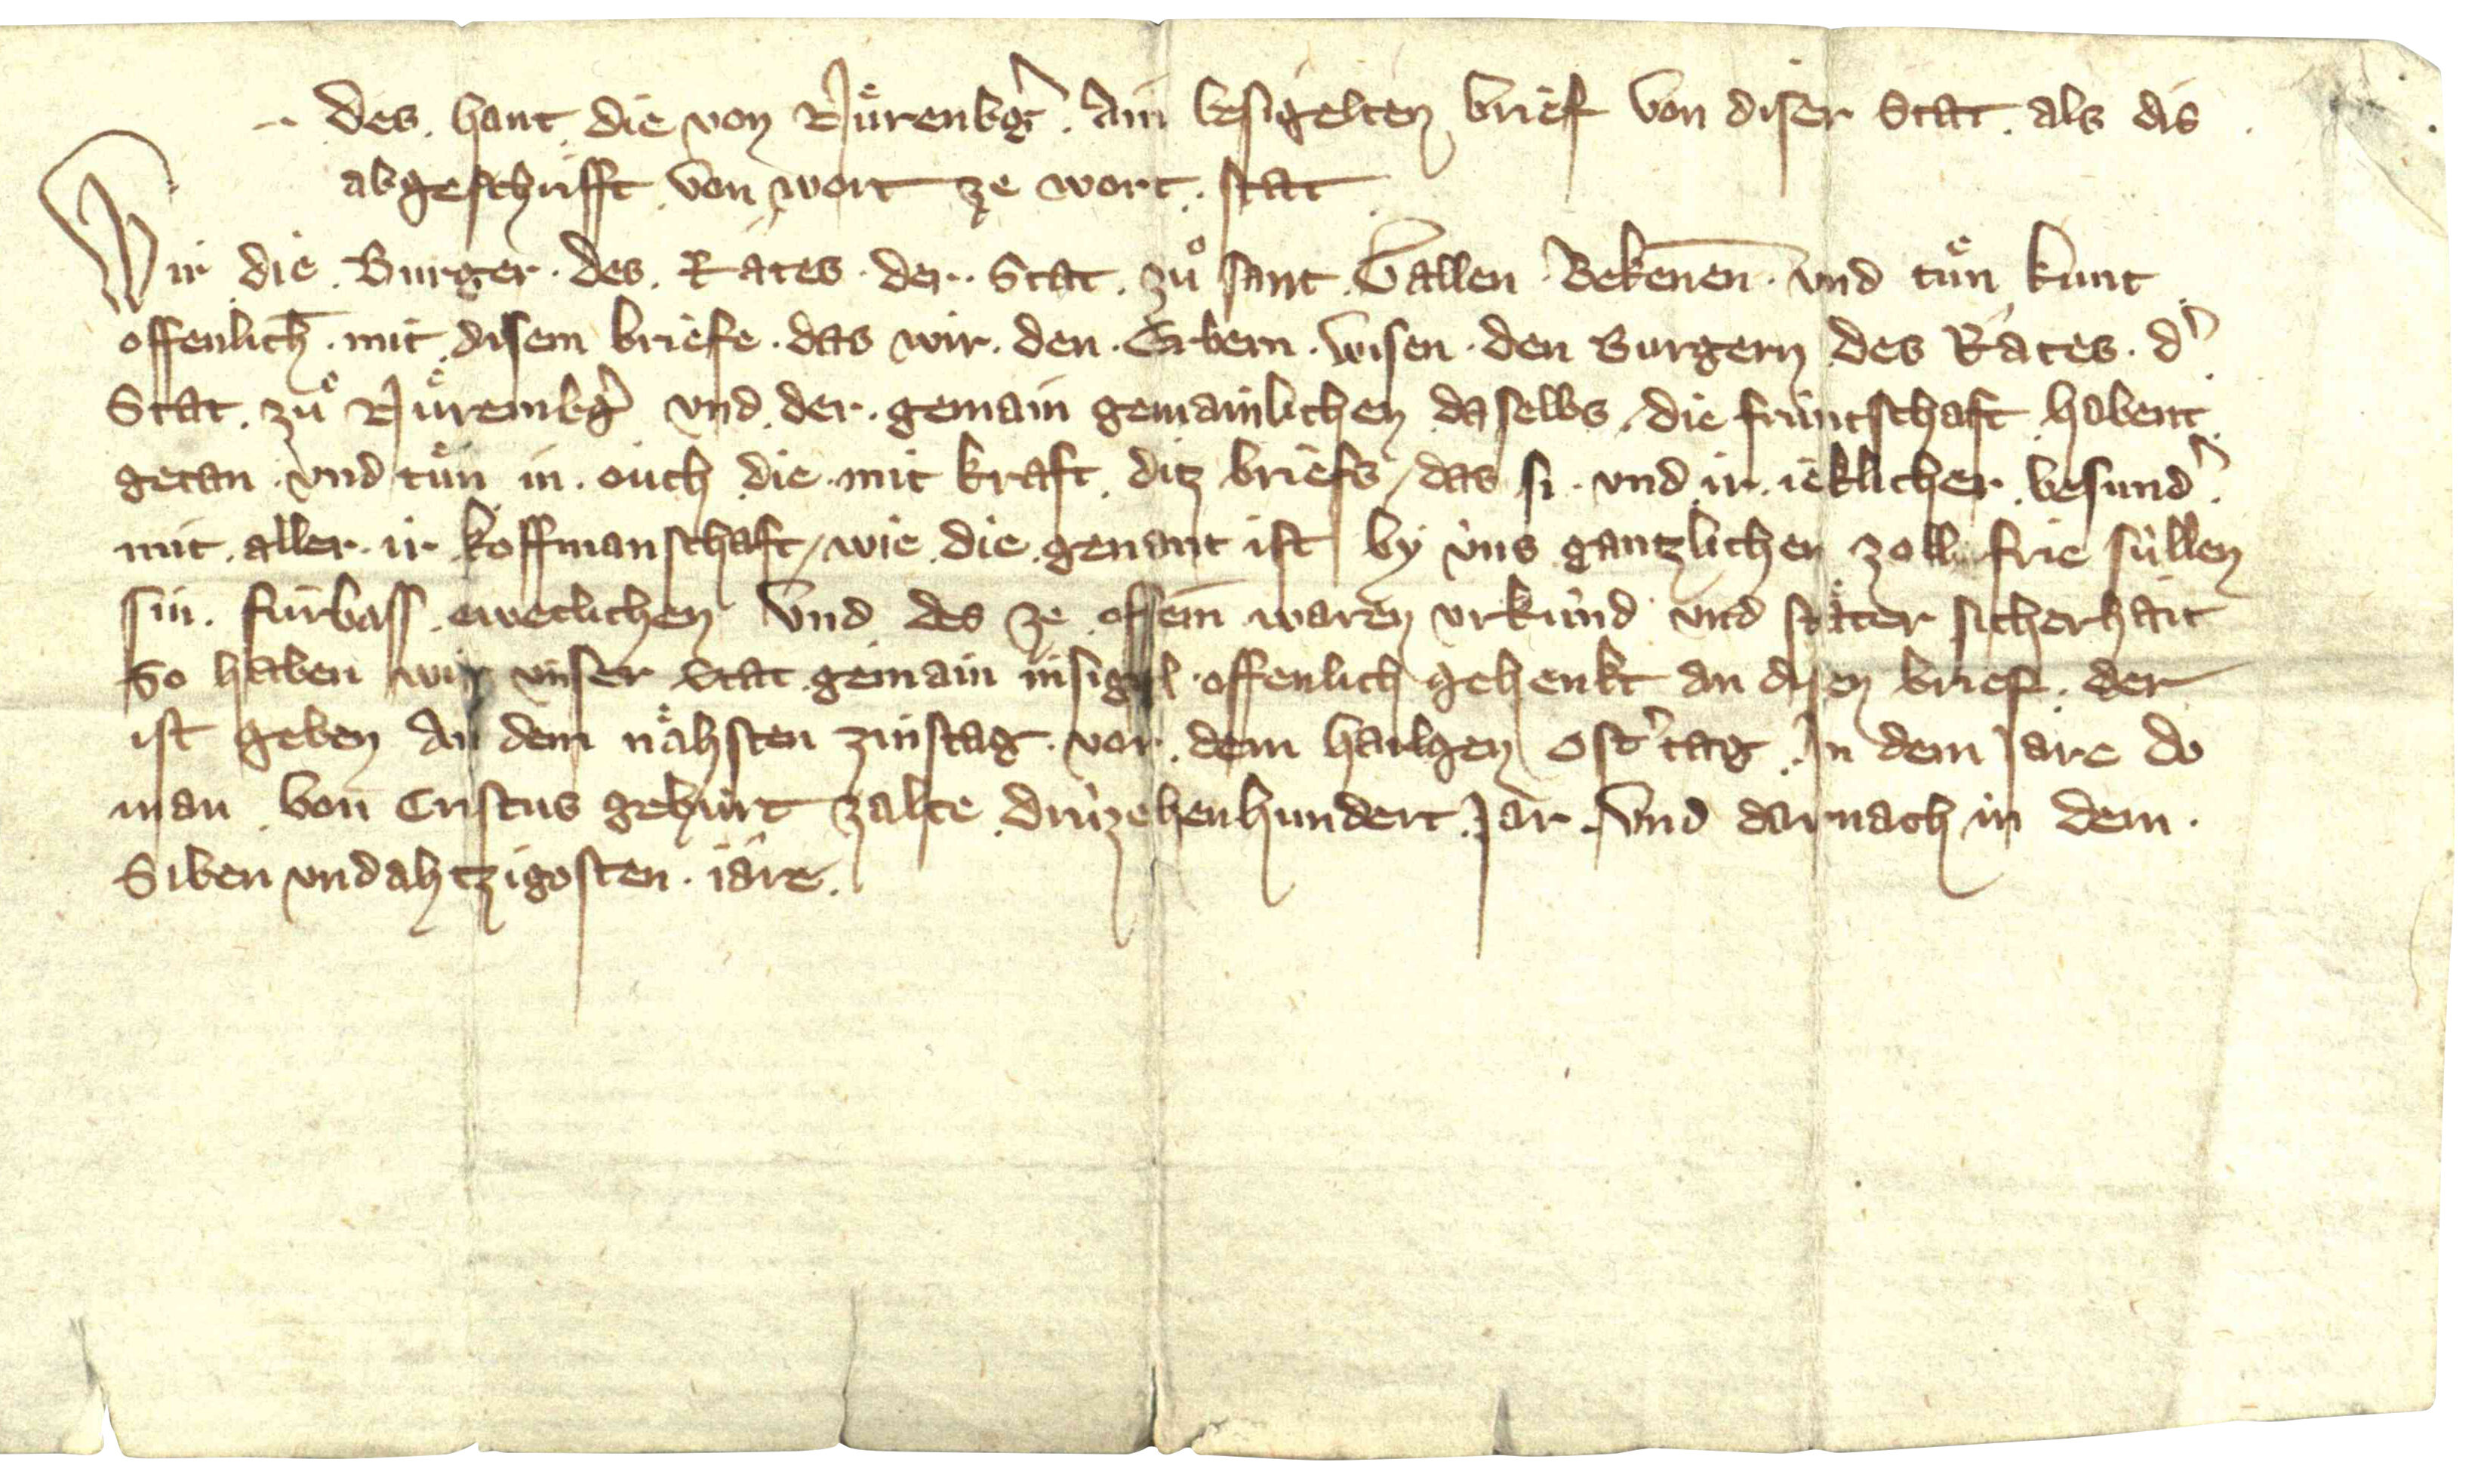 des hant die von Nuͤrenbg̾ . ain besigelten brief von diser Stat . als dis
abgeschrifft von wort ze wort . stat
Wir die . Burger . des . Rates . der . Stat . zuͦ sant . Gallen . Bekenēn . vnd tuͤn kunt
offenlich̄ . mit disem briefe . das wir . den . Erbern . wisen . den Burgern des Rates . d̾
Stat . zuͦ Nuͤrembg̾ vnd . der . gemain gemainlichen daselbs . die fruntschaft habent
getan . vnd tuͤn in . ouch die . mit kraft . ditz briefs / das si . vnd ir . ieklicher besund̾
mit . aller . ir koffmanschaft / wie die genant ist by v́ns gantzlichen zoll frie súllen
sin . fúrbass . eweclichen Vnd des ze offem̄ waren vrkúnd vnd staͤter sicherhait
So haben wir vnser Stat gemain insigel . offenlich gehenkt an disen brief . der
ist geben An dem naͤhsten zinstag . vor . dem hailgen Ost̾tag . In dem Jare do
man . von Cristus gebúrt zalte drúzehenhundert Jar . Vnd darnach in dem .
Siben vndahtzigosten . iare .